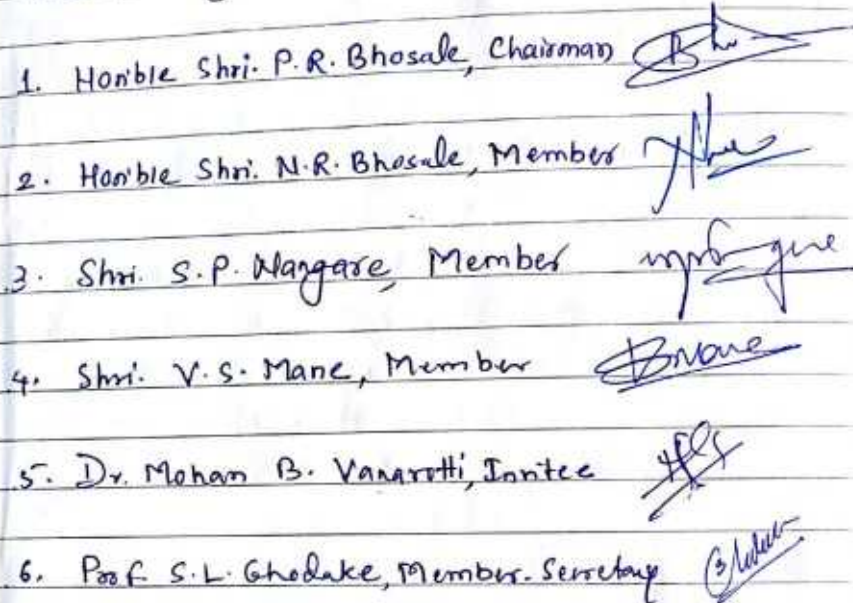 1. Hon'ble Shri. P.R. Bhosale, Chairman
2. Hon'ble Shri. N.R. Bhosale, Member
3. Shri. S.P. Nangare, Member
4. Shri. V.S. Mane, Member
5. Dr. Mohan B. Vanarotti, Invitee
6. Prof. S.L. Ghodake, Member-Secretary